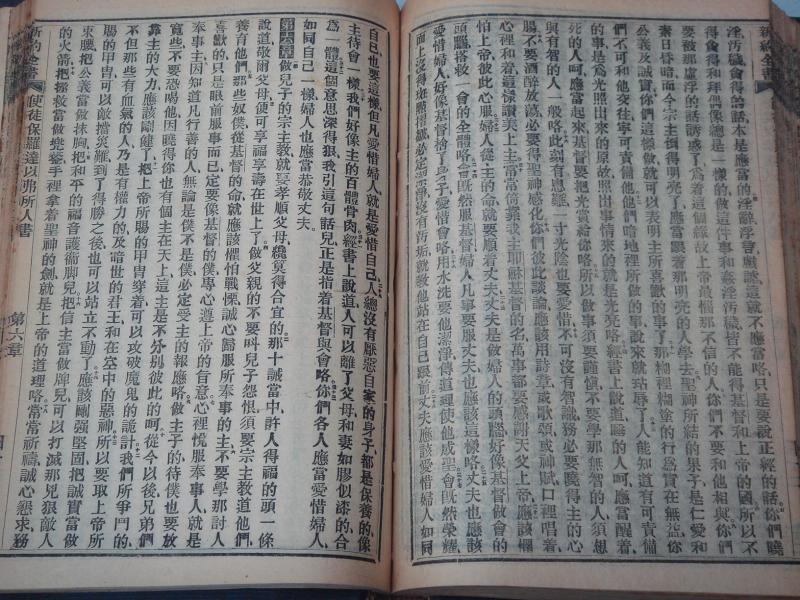 新約全書
淫汚穢會得的話本是應當的淫辭浮言戲謔這就不應當咯只是要說正經的話你們曉
得貪得和拜偶像總是一樣的做這件事和姦淫汚穢皆不能得基督和上帝的國所以不
要被那虛浮的話誘惑了爲着這個緣故上帝最惱那不信的人你們不要和他相與你們
素日昏暗而今宗主倒得明亮了應當跟着那明亮的人學去聖神所結的果子是仁愛和
公義及誠實你們這樣做就可以表明主所喜歡的事了那糊裡糊塗的行爲實在無益你
們不可和他交往寧可責備他他們暗地裡所做的事說來就玷辱了人能知道有可責備
的事是爲光照出來的原故照出事情來的就是光亮咯經書上說道睡的人呵應當醒着
死的人呵應當起來基督要把光賞給你咯所以做事須要謹慎不要學那無智的人須想
與有智的人一般咯此刻有患難一寸光陰也要愛惜不可沒有智識務必要曉得主的心
腸不要酒醉放蕩必要得聖神感化你們彼此談論應該用詩章或歌頌或神賦口裡唱着
心裡和着這樣讚美上主當常倚靠我主耶穌基督的名萬事都要感謝天父上帝應該懼
怕上帝彼此心服婦人從主的命就要順着丈夫丈夫是做婦人的頭腦好像基督做會的
頭腦搭救一會的全體咯會既然服基督婦人凡事要服丈夫也應該這樣咯丈夫也應該
愛惜婦人好像基督捨了身子愛惜會咯用水洗要他潔淨傳道理使他成聖會既然榮耀
面上沒得斑點摺紋必定潔淨沒有汚垢就敎他站在自己跟前丈夫應該愛惜婦人如同
自己也要這樣但凡愛惜婦人就是愛惜自己人總沒有厭惡自家的身子都是保養的像
主待會一樣我們好像主的百體骨肉經書上說道人可以離了父母和妻如膠似漆的合
爲一體這個意思深得狠我引這句話兒正是指着基督與會咯你們各人應當愛惜婦人
如同自己一樣婦人也應當恭敬丈夫
第六章做兒子的宗主教就要孝順父母纔算得合宜的那十誡當中許人得福的頭一條
說道敬爾父母便可享福享壽在世上了做父親的不要呌兒子怨恨須要宗主教道他們
養育他們那些奴僕從基督的命就應該懼怕戰慄誠心歸服所奉事的主不要學那討人
喜歡的只是眼前服事而已定要像基督的僕專心遵上帝的旨意心裡慌服奉事人就是
奉事主因知道凡行善的人無論是僕不是僕必定受主的報應咯做主子的待僕也要放
寛些不要恐嚇他因曉得你也有個主在天上這主是不分別彼此的呵從今以後兄弟們
靠主的大力應該剛健了把上帝所賜的甲冑穿着可以攻破魔鬼的詭計我們所爭鬥的
不但那些有血氣的人乃是有權力的及暗世的君王和在空中的惡神所以要取上帝所
賜的甲冑可以敵擋災難到了得勝之後也可以站立不動了應該剛强堅固把誠實當做
束腰把公義當做抹胸把和平的福音護備脚兒把信主當做牌兒可以打滅那兒狠敵人
的火箭把搭救當做兜鍪手裡拿着聖神的劍就是上帝的道理咯當常祈禱誠心懇求務
新約全書 使徒保羅達以弗所人書 第六章